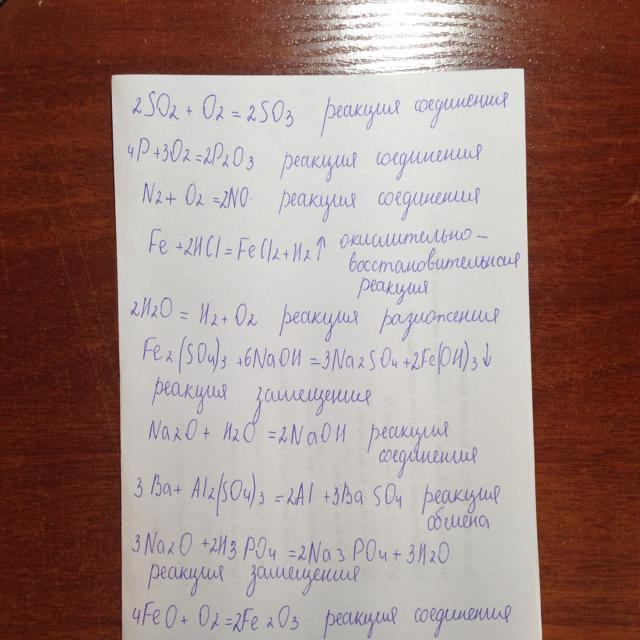 2SO2 + O2 = 2SO3 реакция соединения
4P+3O2=2P2O3 реакция соединения
N2 + O2 =2NO реакция соединения
Fe +2HCl = FeCl2 + H2↑ окислительно-
восстановительная
реакция
2H2O = H2 + O2 реакция разложения
Fe2(SO4)3 +6NaOH =3Na2SO4 +2Fe(OH)3↓
реакция замещения
Na2O + H2O =2NaOH реакция
соединения
3Ba + Al2(SO4)3 =2Al +3BaSO4 реакция
обмена
3Na2O +2H3PO4 =2Na3PO4 + 3H2O
реакция замещения
4FeO + O2 =2Fe2O3 реакция соединения